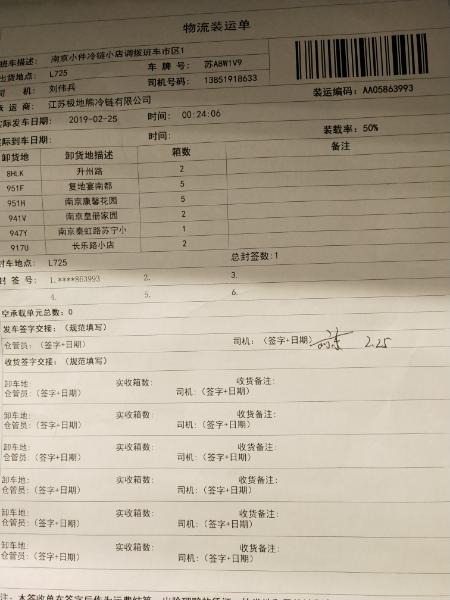 物流装运单
班车描述: 南京小件冷链小店调拨班车市区1
出货地点: L725 车 牌 号: 苏A8W1V9
司 机: 刘伟兵 司机号码: 13851918633
承 运 商: 江苏极地熊冷链有限公司 装运编码: AA05863993
实际发车日期: 2019-02-25 时间: 00:24:06
实际到车日期: 时间: 装载率: 50%
卸货地 卸货地描述 箱数 备注
8HLK 升州路 2
951F 复地宴南都 5
951H 南京康馨花园 5
941V 南京皇册家园 2
947Y 南京秦虹路苏宁小 1
917U 长乐路小店 2
封车地点: L725 总封签数: 1
封 签 号: 1.****863993 2. 3.
4. 5. 6.
空承载单元总数: 0
发车签字交接: (规范填写)
仓管员: (签字+日期) 司机: (签字+日期) 2.25
收货签字交接: (规范填写)
卸车地: 实收箱数: 收货备注:
仓管员: (签字+日期) 司机: (签字+日期)
卸车地: 实收箱数: 收货备注:
仓管员: (签字+日期) 司机: (签字+日期)
卸车地: 实收箱数: 收货备注:
仓管员: (签字+日期) 司机: (签字+日期)
卸车地: 实收箱数: 收货备注:
仓管员: (签字+日期) 司机: (签字+日期)
卸车地: 实收箱数: 收货备注:
仓管员: (签字+日期) 司机: (签字+日期)
卸车地: 实收箱数: 收货备注:
仓管员: (签字+日期) 司机: (签字+日期)
注: 本签收单在签字后作为运费结算